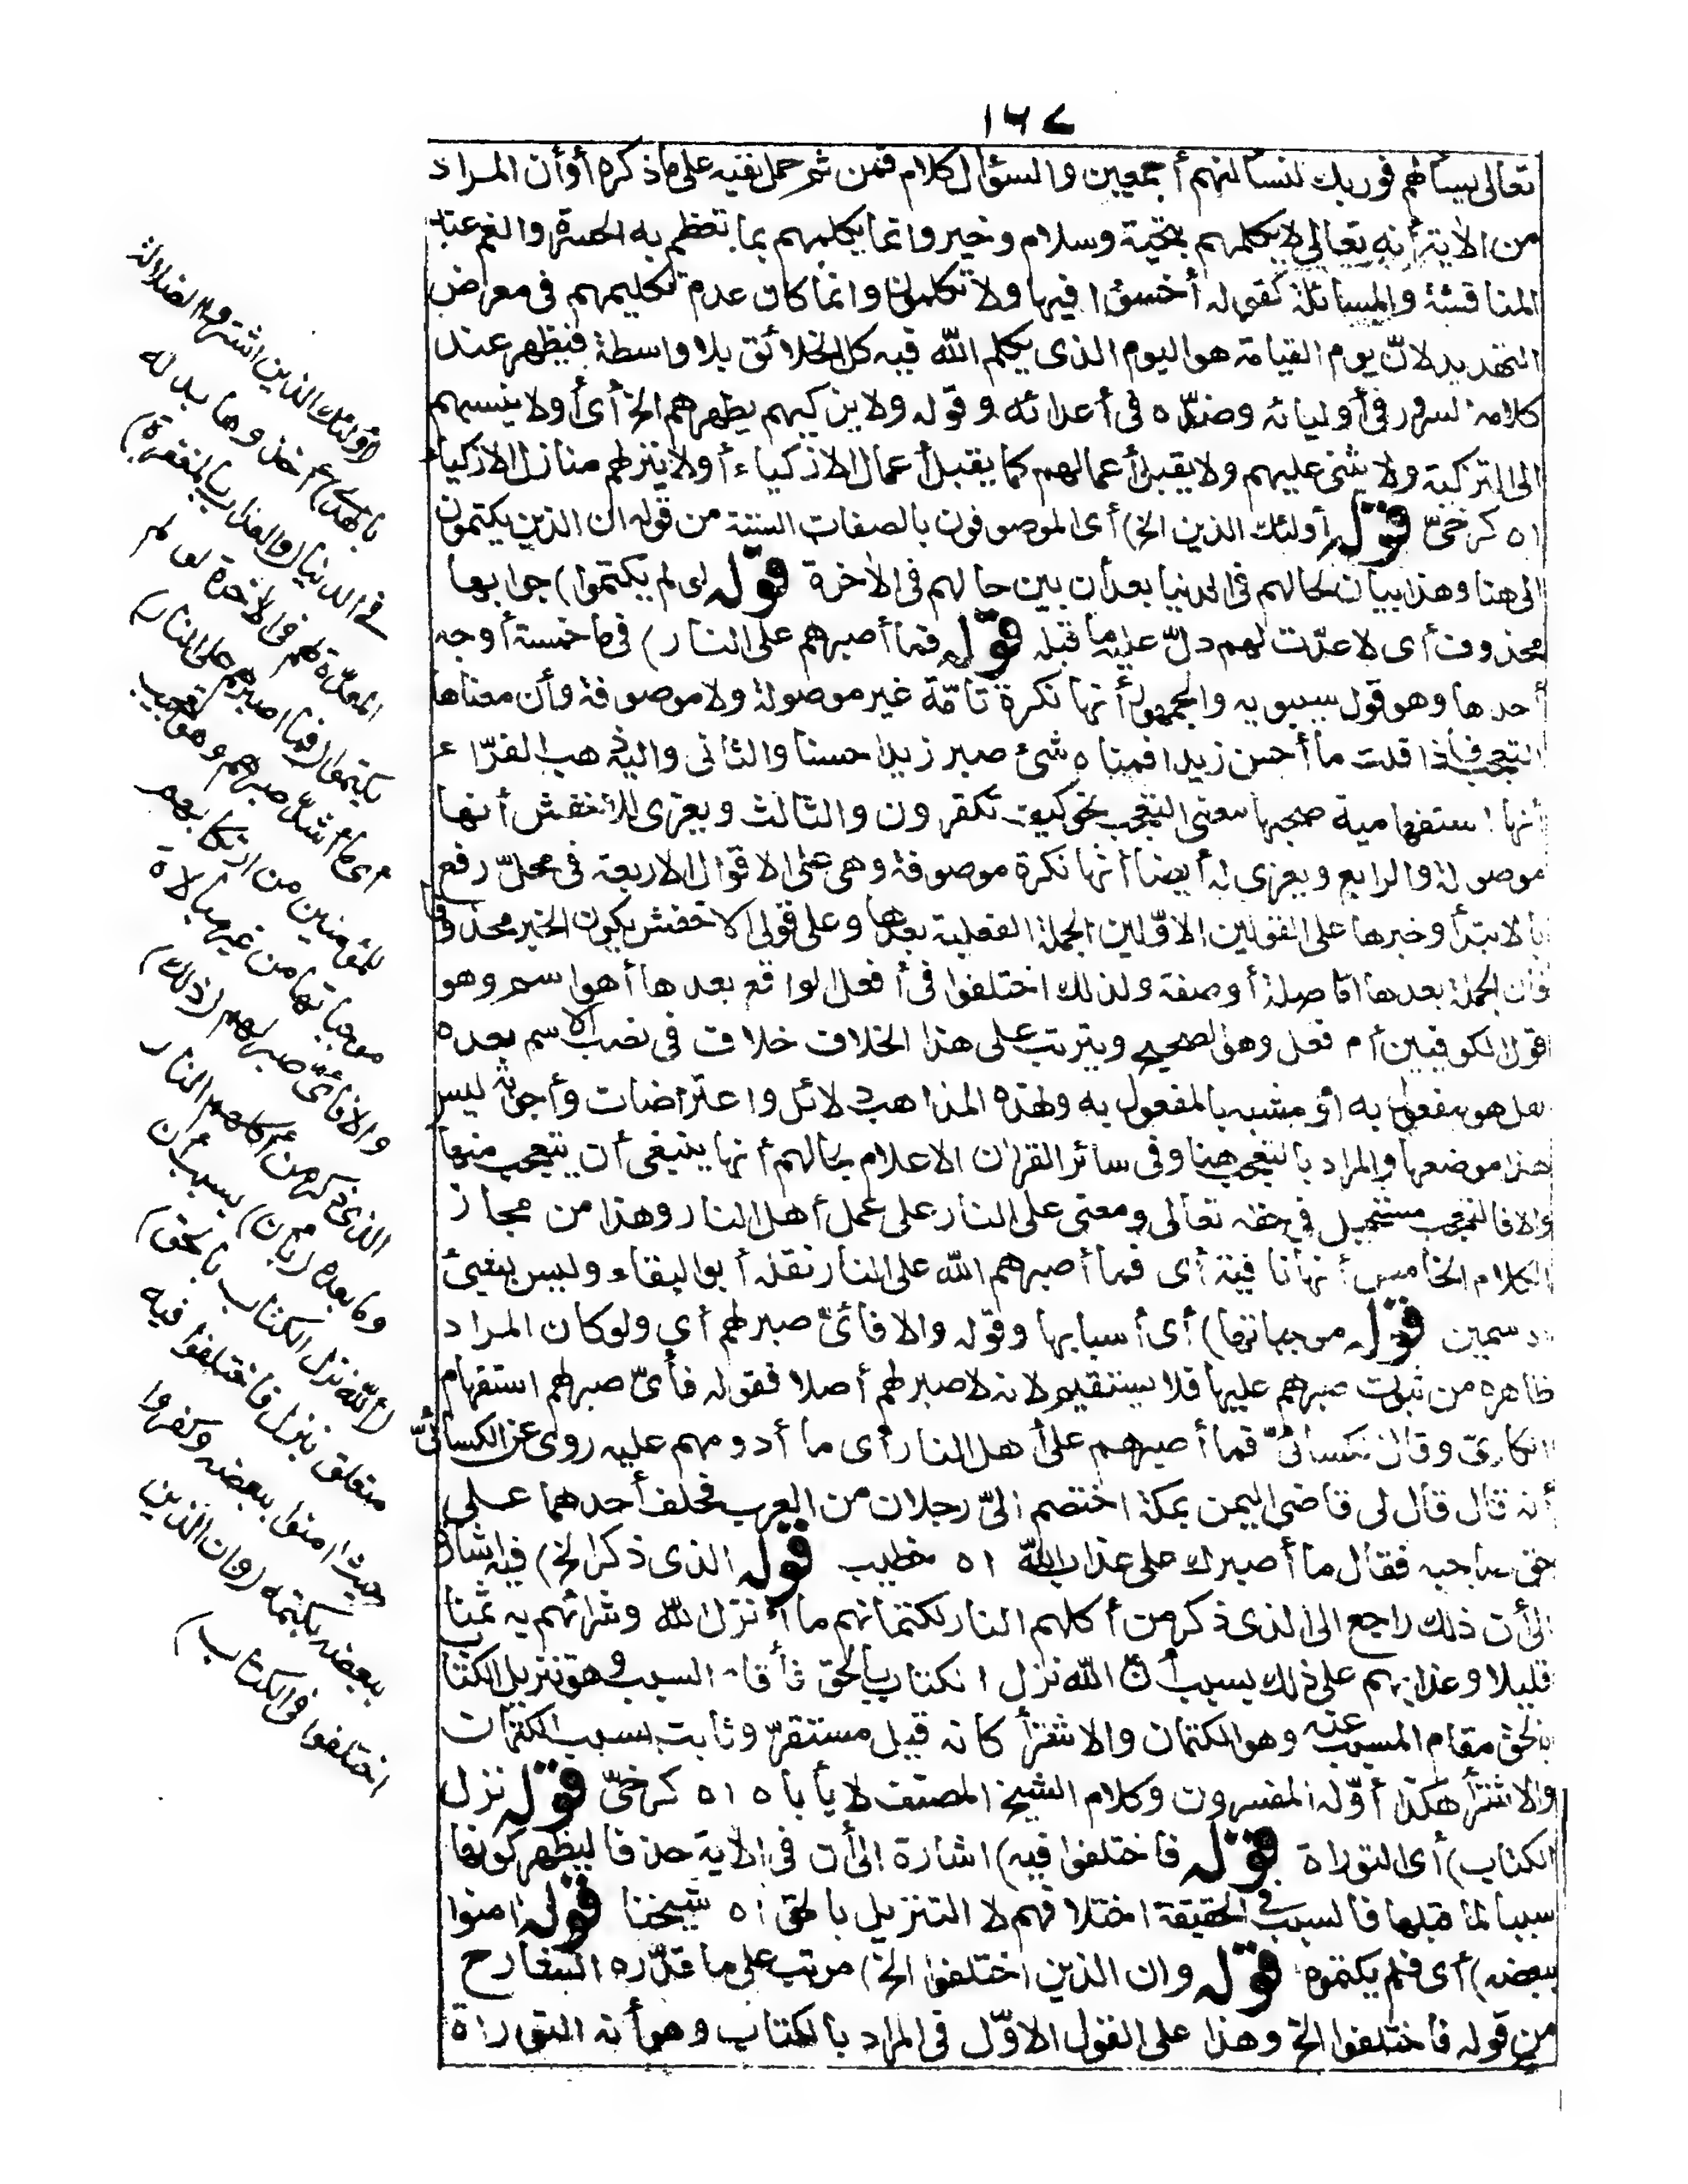 ١٦٧
تعالى يسألهم فوربك لنسألنهم أجمعين والسؤال كلام فمن ثم حمل نفيه على ماذكره أوأن المراد
من الاية أنه تعالى لايكلمهم بتحية وسلام وخير وانما يكلمهم بما تعظم به الحسرة والغم عند
المناقشة والمساءلة كقوله أخسؤا فيها ولا تكلمون وانما كان عدم تكليمهم فى معرض
التهديد لانّ يوم القيامة هو اليوم الذى يكلم الله فيه كل الخلائق بلا واسطة فيظهر عند
كلامه السرور فى أوليائه وضدّه فى أعدائه وقوله ولا يزكيهم يطهرهم الخ أى أولا ينسبهم
الى التزكية ولا يثنى عليهم ولا يقبل أعمالهم كما يقبل أعمال الازكياء أولا ينزلهم منازل الازكياء
اه كرخىّ قوله أولئك الذين الخ) أى الموصوفون بالصفات الستة من قوله ان الذين يكتمون
الى هنا وهذا بيان لحالهم فى الدنيا بعد أن بين حالهم فى الاخرة قوله لو لم يكتموا) جوابها
محذوف أى لاعدّت لهم دلّ عليه ما قبله قوله فما أصبرهم على النار) فى ما خمسة أوجه
أحدها وهو قول سيبويه والجمهور أنها نكرة تامّة غير موصولة ولا موصوفة وأن معناها
التعجب فاذا قلت ما أحسن زيدا فمعناه شئ صير زيدا حسنا والثانى واليه ذهب الفرّاء
أنها استفهامية صحبها معنى التعجب نحو كيف تكفرون والثالث ويعزى للاخفش أنها
موصولة والرابع ويعزى له أيضا أنها نكرة موصوفة وهى على الاقوال الاربعة فى محلّ رفع
بالابتدأ وخبرها على القولين الاوّلين الجملة الفعلية بعدها وعلى قولى الاخفش يكون الخبر محذوفا
فان الجملة بعدها اما صلة أو صفة ولذلك اختلفوا فى أفعل الواقع بعدها أهو اسم وهو
قول الكوفيين أم فعل وهو الصحيح ويترتب على هذا الخلاف خلاف فى نصب الاسم بعده
هل هو مفعول به أو مشبه بالمفعول به ولهذه المذاهب دلائل واعتراضات وأجوبة ليس
هذا موضعها والمراد بالتعجب هنا وفى سائر القران الاعلام بحالهم أنها ينبغى أن يتعجب منها
والا فالتعجب مستحيل فى حقه تعالى ومعنى على النار على عمل أهل النار وهذا من مجاز
الكلام الخامس أنها نافية أى فما أصبرهم الله على النار نقله أبو البقاء وليس بشئ
اه سمين قوله موجباتها) أى أسبابها وقوله والا فأىّ صبر لهم أى ولو كان المراد
ظاهره من ثبوت صبرهم عليها فلا يستقيم لانه لا صبر لهم أصلا فقوله فأىّ صبر لهم استفهام
انكارىّ وقال الكسائىّ فما أصبرهم على أهل النار أى ما أدومهم عليه روى عن الكسائىّ
أنه قال قال لى قاضى اليمن بمكة اختصم الىّ رجلان من العرب فحلف أحدهما على
حق صاحبه فقال ما أصبرك على عذاب الله اه خطيب قوله الذى ذكر الخ) فيه اشارة
الى أن ذلك راجع الى الذى ذكر من أكلهم النار لكتمانهم ما أنزل الله وشرائهم به ثمنا
قليلا وعذابهم على ذلك بسبب أنّ الله نزل الكتاب بالحق فأقام السبب وهو تنزيل الكتاب
بالحق مقام المسبب عنه وهو الكتمان والاشترا كانه قيل مستقرّ وثابت بسبب الكتمان
والاشترا هكذا أوّله المفسرون وكلام الشيخ المصنف لا يأباه اه كرخىّ قوله نزل
الكتاب) أى التوراة قوله فاختلفوا فيه) اشارة الى أن فى الاية حذفا ليظهر كونها
سببا لما قبلها فالسبب فى الحقيقة اختلافهم لا التنزيل بالحق اه شيخنا قوله امنوا
ببعضه) أى فلم يكتموه قوله وان الذين اختلفوا الخ) مرتب على ما قدّره الشارح
من قوله فاختلفوا الخ وهذا على القول الاوّل فى المراد بالكتاب وهو أنه التوراة
(أولئك الذين اشتروا الضلالة
بالهدى) أخذوها بدله
فى الدنيا (والعذاب بالمغفرة)
المعدّة لهم فى الاخرة لو لم
يكتموا (فما أصبرهم على النار)
أى ما أشدّ صبرهم وهو تعجيب
للمؤمنين من ارتكابهم
موجباتها من غير مبالاة
والا فأىّ صبر لهم (ذلك)
الذى ذكر من أكلهم النار
وما بعده (بأن) بسبب أن
(الله نزل الكتاب بالحق)
متعلق بنزل فاختلفوا فيه
حيث امنوا ببعضه وكفروا
ببعضه بكتمه (وان الذين
اختلفوا فى الكتاب)